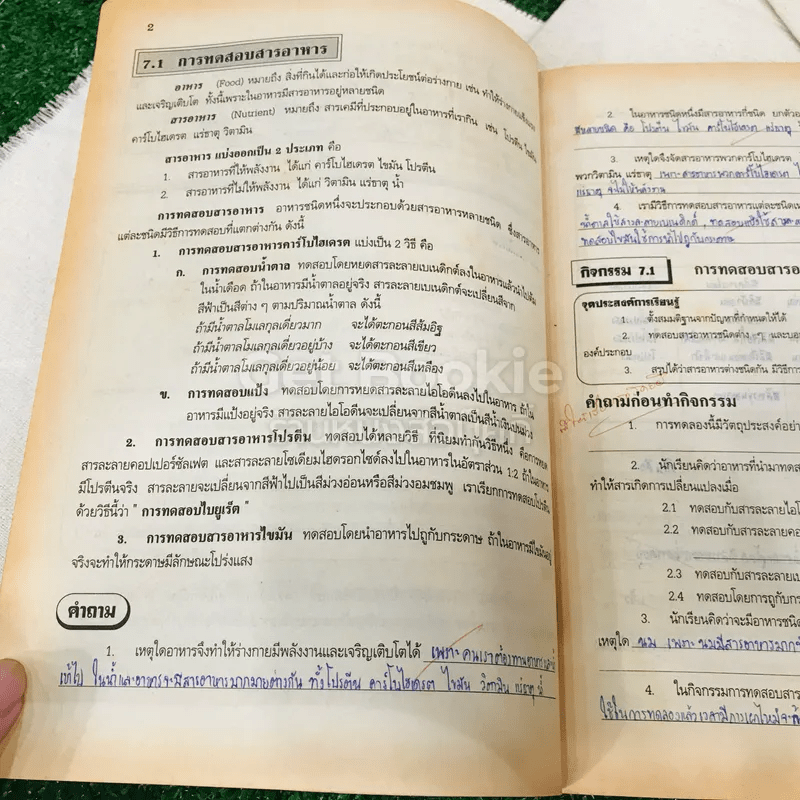 2
7.1 การทดสอบสารอาหาร
อาหาร (Food) หมายถึง สิ่งที่กินได้และก่อให้เกิดประโยชน์ต่อร่างกาย เช่น ทำให้ร่างกายแข็งแรง
และเจริญเติบโต ทั้งนี้เพราะในอาหารมีสารอาหารอยู่หลายชนิด
สารอาหาร (Nutrient) หมายถึง สารเคมีที่ประกอบอยู่ในอาหารที่เรากิน เช่น โปรตีน ไขมัน
คาร์โบไฮเดรต แร่ธาตุ วิตามิน
สารอาหาร แบ่งออกเป็น 2 ประเภท คือ
1. สารอาหารที่ให้พลังงาน ได้แก่ คาร์โบไฮเดรต ไขมัน โปรตีน
2. สารอาหารที่ไม่ให้พลังงาน ได้แก่ วิตามิน แร่ธาตุ น้ำ
การทดสอบสารอาหาร อาหารชนิดหนึ่งจะประกอบด้วยสารอาหารหลายชนิด ซึ่งสารอาหาร
แต่ละชนิดมีวิธีการทดสอบที่แตกต่างกัน ดังนี้
1. การทดสอบสารอาหารคาร์โบไฮเดรต แบ่งเป็น 2 วิธี คือ
ก. การทดสอบน้ำตาล ทดสอบโดยหยดสารละลายเบเนดิกต์ลงในอาหารแล้วนำไปต้ม
ในน้ำเดือด ถ้าในอาหารมีน้ำตาลอยู่จริง สารละลายเบเนดิกต์จะเปลี่ยนสีจาก
สีฟ้าเป็นสีต่าง ๆ ตามปริมาณน้ำตาล ดังนี้
ถ้ามีน้ำตาลโมเลกุลเดี่ยวมาก จะได้ตะกอนสีส้มอิฐ
ถ้ามีน้ำตาลโมเลกุลเดี่ยวอยู่บ้าง จะได้ตะกอนสีเขียว
ถ้ามีน้ำตาลโมเลกุลเดี่ยวอยู่น้อย จะได้ตะกอนสีเหลือง
ข. การทดสอบแป้ง ทดสอบโดยการหยดสารละลายไอโอดีนลงไปในอาหาร ถ้าใน
อาหารมีแป้งอยู่จริง สารละลายไอโอดีนจะเปลี่ยนจากสีน้ำตาลเป็นสีน้ำเงินปนม่วง
2. การทดสอบสารอาหารโปรตีน ทดสอบได้หลายวิธี ที่นิยมทำกันวิธีหนึ่ง คือการหยด
สารละลายคอปเปอร์ซัลเฟต และสารละลายโซเดียมไฮดรอกไซด์ลงไปในอาหารในอัตราส่วน 1:2 ถ้าในอาหาร
มีโปรตีนจริง สารละลายจะเปลี่ยนจากสีฟ้าไปเป็นสีม่วงอ่อนหรือสีม่วงอมชมพู เราเรียกการทดสอบโปรตีน
ด้วยวิธีนี้ว่า " การทดสอบไบยูเร็ต "
3. การทดสอบสารอาหารไขมัน ทดสอบโดยนำอาหารไปถูกับกระดาษ ถ้าในอาหารมีไขมันอยู่
จริงจะทำให้กระดาษมีลักษณะโปร่งแสง
คำถาม
1. เหตุใดอาหารจึงทำให้ร่างกายมีพลังงานและเจริญเติบโตได้ เพราะ คนเราต้องทานอาหาร
เข้าไป ในน้ำและอาหารจะมีสารอาหารมากมายต่างกัน ทั้งโปรตีน คาร์โบไฮเดรต ไขมัน วิตามิน แร่ธาตุ น้ำ
2. ในอาหารชนิดหนึ่งมีสารอาหารกี่ชนิด ยกตัวอ
หลายชนิด คือ โปรตีน ไขมัน คาร์โบไฮเดรต แร่ธาตุ
3. เหตุใดจึงจัดสารอาหารพวกคาร์โบไฮเดรต
พวกวิตามิน แร่ธาตุ เพราะสารอาหารพวกคาร์โบไฮเดรต
แร่ธาตุ
4. เรามีวิธีการทดสอบสารอาหารแต่ละชนิดเห
น้ำตาลใช้สารละลายเบเนดิกต์, ทดสอบแป้งใช้สารละ
ทดสอบไขมันใช้การนำไปถูกับกระดาษ
กิจกรรม 7.1 การทดสอบสารอ
จุดประสงค์การเรียนรู้
1. ตั้งสมมติฐานจากปัญหาที่กำหนดให้ได้
2. ทดสอบสารอาหารชนิดต่าง ๆ และบอ
องค์ประกอบ
3. สรุปได้ว่าสารอาหารต่างชนิดกัน มีวิธีการ
คำถามก่อนทำกิจกรรม
1. การทดลองนี้มีวัตถุประสงค์อย่า
2. นักเรียนคิดว่าอาหารที่นำมาทดส
ทำให้สารเกิดการเปลี่ยนแปลงเมื่อ
2.1 ทดสอบกับสารละลายไอโ
2.2 ทดสอบกับสารละลายคอ
2.3 ทดสอบกับสารละลายเบ
2.4 ทดสอบโดยการถูกับกร
3. นักเรียนคิดว่าจะมีอาหารชนิด
เหตุใด นม เพราะ นมมีสารอาหารมากก
4. ในกิจกรรมการทดสอบสาร
ใช้ในการทดลองแล้วเวลามีการเผาไหม้จะ